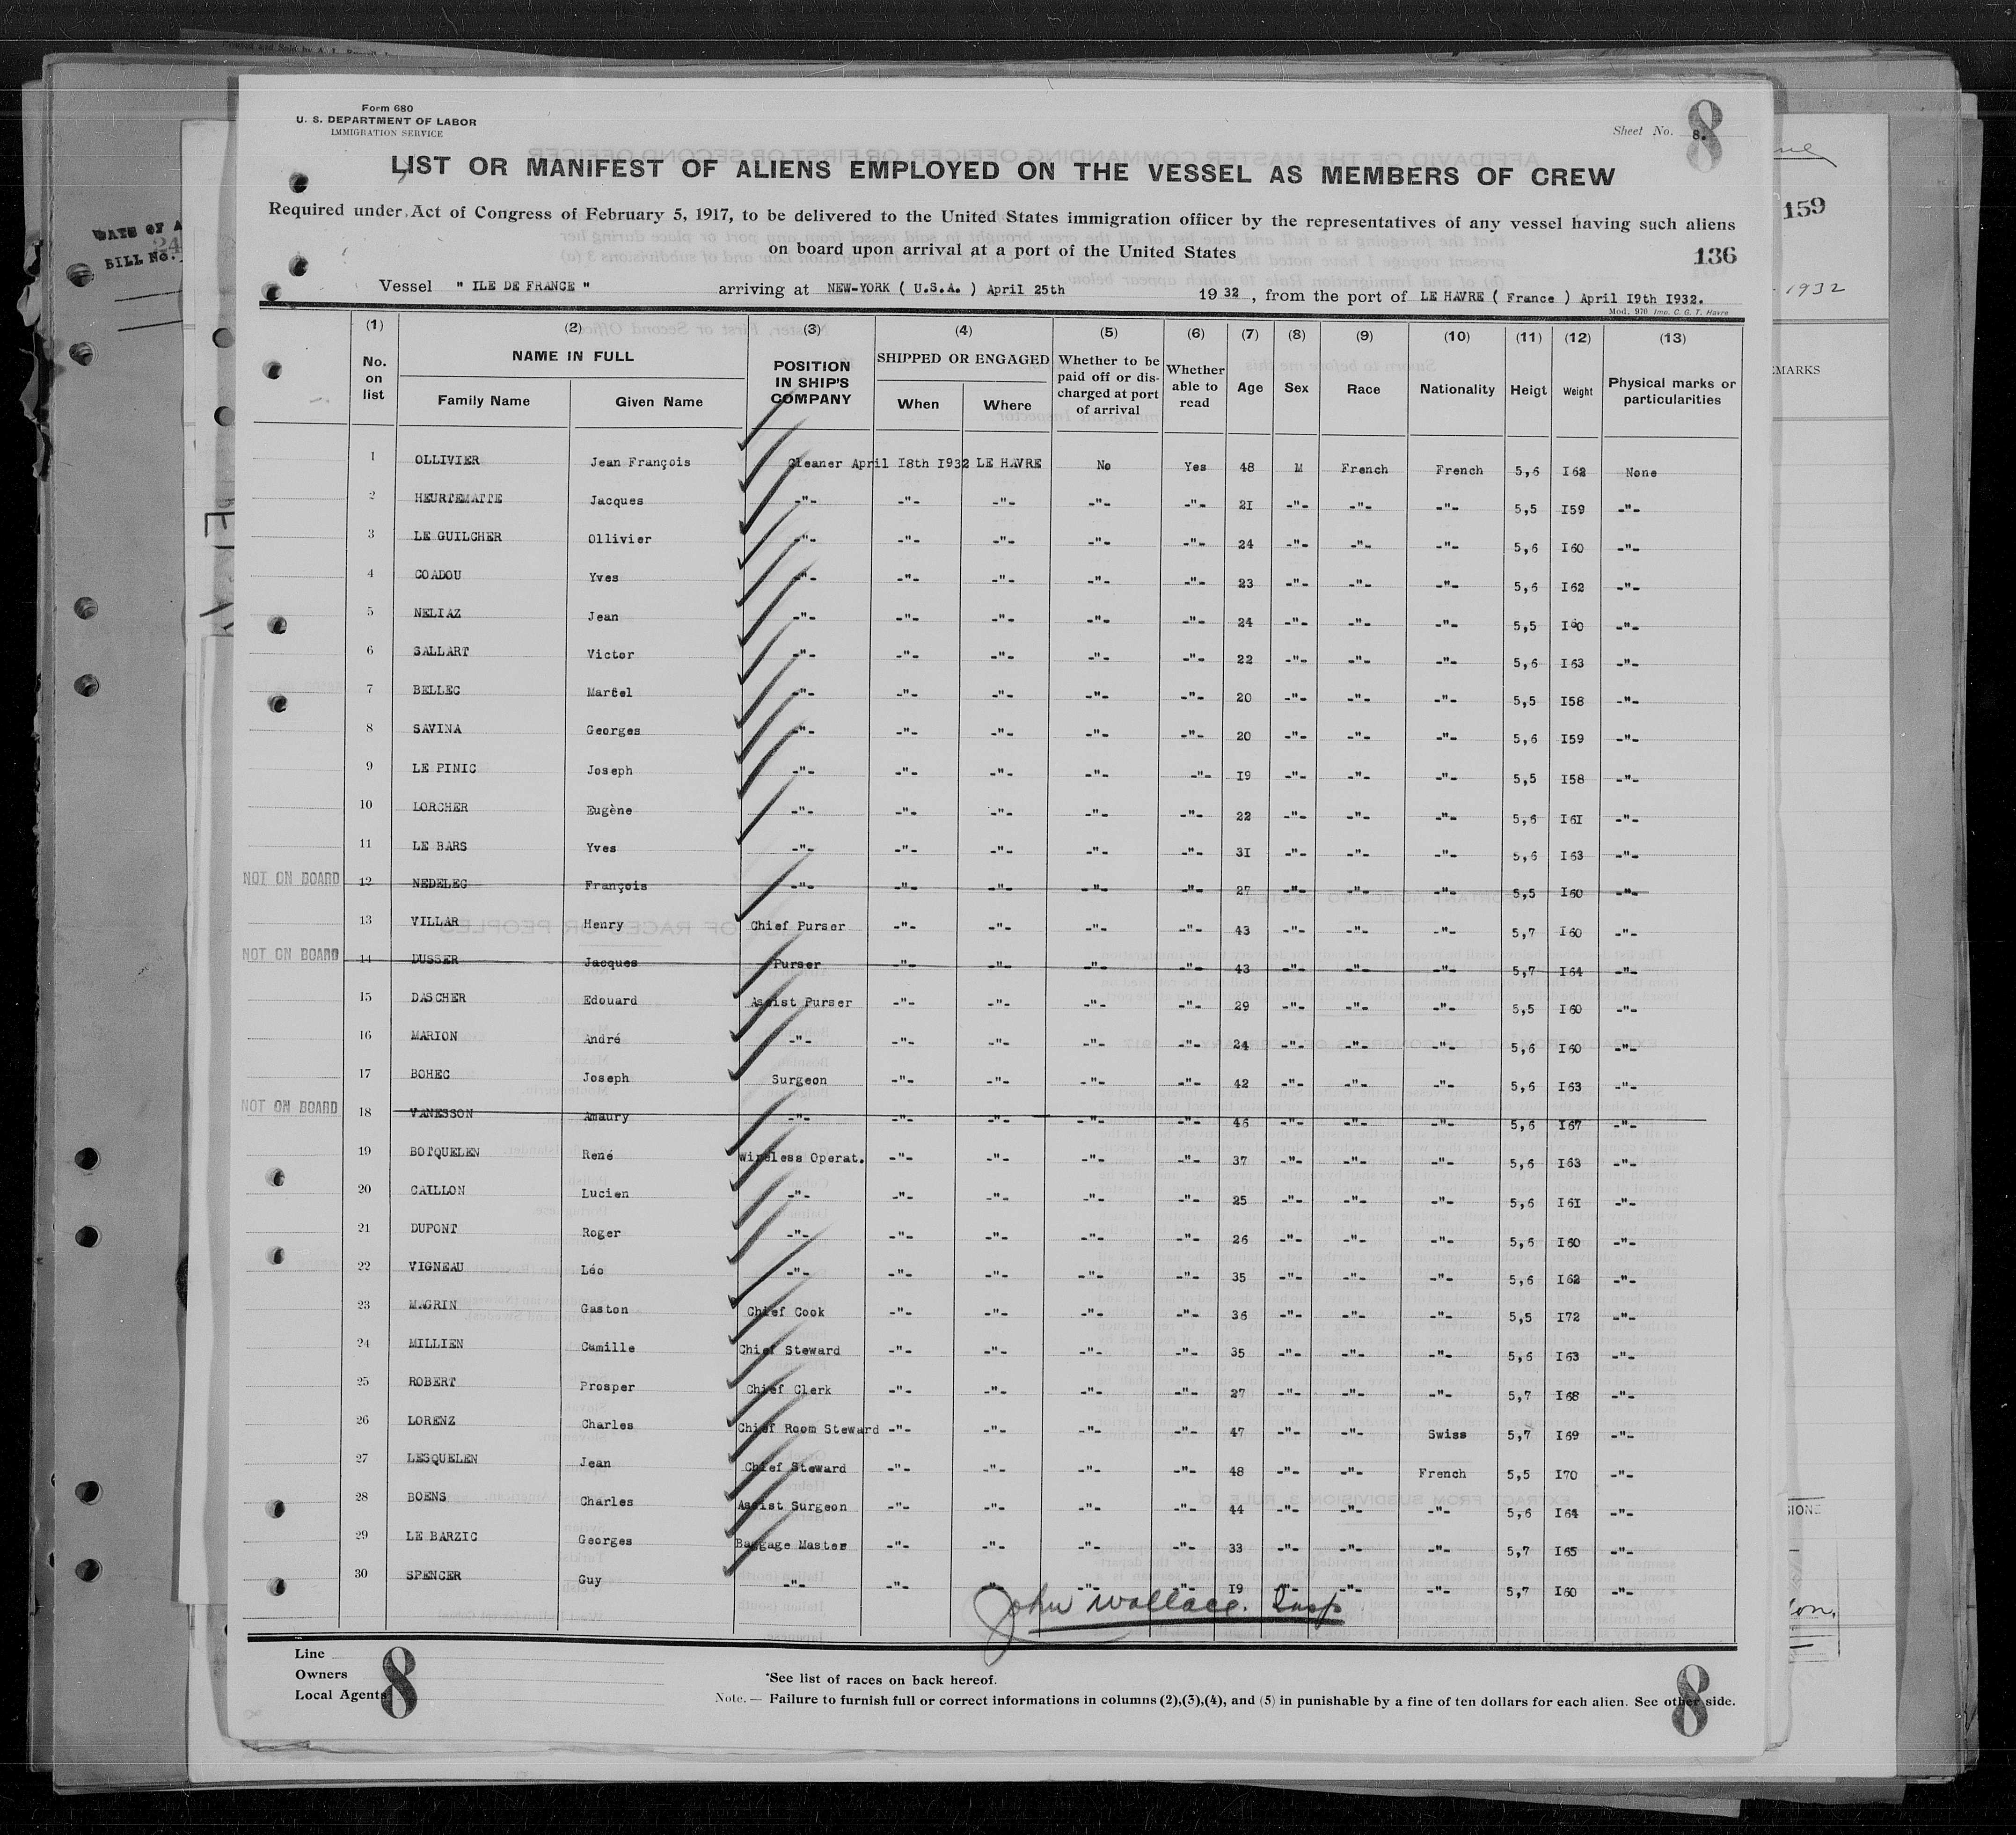 Form 680
U. S. DEPARTMENT OF LABOR
IMMIGRATION SERVICE
Sheet No. 8.
8
LIST OR MANIFEST OF ALIENS EMPLOYED ON THE VESSEL AS MEMBERS OF CREW
Required under Act of Congress of February 5, 1917, to be delivered to the United States immigration officer by the representatives of any vessel having such aliens
on board upon arrival at a port of the United States
136
159
DATE OF A
24
BILL No.
1932
Vessel " ILE DE FRANCE " arriving at NEW-YORK ( U.S.A. ) April 25th 1932, from the port of LE HAVRE ( France ) April I9th I932.
Mod. 970 Imp. C. G. T. Havre
(1) (2) (3) (4) (5) (6) (7) (8) (9) (10) (11) (12) (13)
No. on list NAME IN FULL Family Name Given Name POSITION IN SHIP'S COMPANY SHIPPED OR ENGAGED When Where Whether to be paid off or discharged at port of arrival Whether able to read Age Sex Race Nationality Heigt Weight Physical marks or particularities
EMARKS
1 OLLIVIER Jean François Cleaner April I8th I932 LE HAVRE No Yes 48 M French French 5,6 I62 None
2 HEURTEMATTE Jacques -"- -"- -"- -"- -"- 2I -"- -"- -"- 5,5 I59 -"-
3 LE GUILCHER Ollivier -"- -"- -"- -"- -"- 24 -"- -"- -"- 5,6 I60 -"-
4 COADOU Yves -"- -"- -"- -"- -"- 23 -"- -"- -"- 5,6 I62 -"-
5 NELIAZ Jean -"- -"- -"- -"- -"- 24 -"- -"- -"- 5,5 I60 -"-
6 SALLART Victor -"- -"- -"- -"- -"- 22 -"- -"- -"- 5,6 I63 -"-
7 BELLEC Marcel -"- -"- -"- -"- -"- 20 -"- -"- -"- 5,5 I58 -"-
8 SAVINA Georges -"- -"- -"- -"- -"- 20 -"- -"- -"- 5,6 I59 -"-
9 LE PINIC Joseph -"- -"- -"- -"- -"- I9 -"- -"- -"- 5,5 I58 -"-
10 LORCHER Eugène -"- -"- -"- -"- -"- 22 -"- -"- -"- 5,6 I6I -"-
11 LE BARS Yves -"- -"- -"- -"- -"- 3I -"- -"- -"- 5,6 I63 -"-
NOT ON BOARD 12 NEDELEC François -"- -"- -"- -"- -"- 27 -"- -"- -"- 5,5 I60 -"-
13 VILLAR Henry Chief Purser -"- -"- -"- -"- 43 -"- -"- -"- 5,7 I60 -"-
NOT ON BOARD 14 DUSSER Jacques Purser -"- -"- -"- -"- 43 -"- -"- -"- 5,7 I64 -"-
15 DASCHER Edouard Assist Purser -"- -"- -"- -"- 29 -"- -"- -"- 5,5 I60 -"-
16 MARION André -"- -"- -"- -"- -"- 24 -"- -"- -"- 5,6 I60 -"-
17 BOHEC Joseph Surgeon -"- -"- -"- -"- 42 -"- -"- -"- 5,6 I63 -"-
NOT ON BOARD 18 VANESSON Amaury -"- -"- -"- -"- -"- 46 -"- -"- -"- 5,6 I67 -"-
19 BOTQUELEN René Wireless Operat. -"- -"- -"- -"- 37 -"- -"- -"- 5,6 I63 -"-
20 CAILLON Lucien -"- -"- -"- -"- -"- 25 -"- -"- -"- 5,6 I6I -"-
21 DUPONT Roger -"- -"- -"- -"- -"- 26 -"- -"- -"- 5,6 I60 -"-
22 VIGNEAU Léo -"- -"- -"- -"- -"- 35 -"- -"- -"- 5,6 I62 -"-
23 MAGRIN Gaston Chief Cook -"- -"- -"- -"- 36 -"- -"- -"- 5,5 I72 -"-
24 MILLIEN Camille Chief Steward -"- -"- -"- -"- 35 -"- -"- -"- 5,6 I63 -"-
25 ROBERT Prosper Chief Clerk -"- -"- -"- -"- 27 -"- -"- -"- 5,7 I68 -"-
26 LORENZ Charles Chief Room Steward -"- -"- -"- -"- 47 -"- -"- Swiss 5,7 I69 -"-
27 LESQUELEN Jean Chief Steward -"- -"- -"- -"- 48 -"- -"- French 5,5 I70 -"-
28 BOENS Charles Assist Surgeon -"- -"- -"- -"- 44 -"- -"- -"- 5,6 I64 -"-
29 LE BARZIC Georges Baggage Master -"- -"- -"- -"- 33 -"- -"- -"- 5,7 I65 -"-
30 SPENCER Guy -"- -"- -"- -"- -"- I9 -"- -"- -"- 5,7 I60 -"-
John Wallace. Insp
Line
Owners
Local Agents
8
*See list of races on back hereof.
Note. — Failure to furnish full or correct informations in columns (2),(3),(4), and (5) in punishable by a fine of ten dollars for each alien. See other side.
8